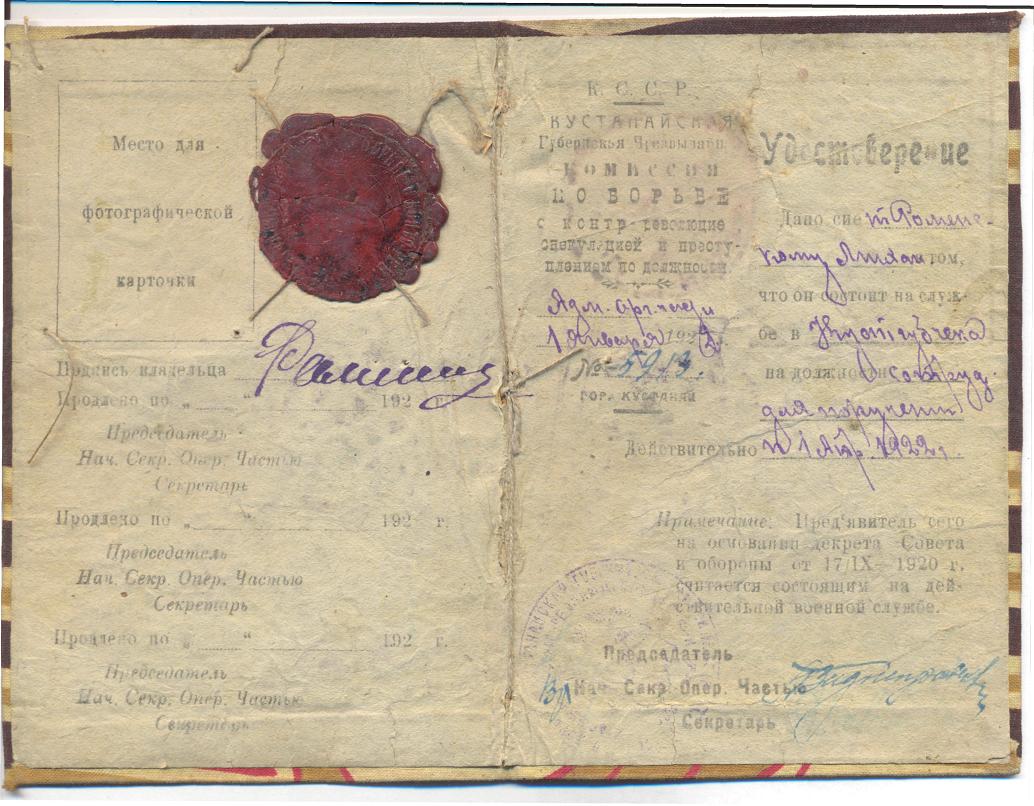 Место для
фотографической
карточки
Подпись владельца
Продлено по „ “ 192 г.
Председатель
Нач. Секр. Опер. Частью
Секретарь
Продлено по „ “ 192 г.
Председатель
Нач. Секр. Опер. Частью
Секретарь
Продлено по „ “ 192 г.
Председатель
Нач. Секр. Опер. Частью
Секретарь
К. С. С. Р.
КУСТАНАЙСКАЯ
Губернская Чрезвычайн.
КОМИССИЯ
ПО БОРЬБЕ
с контр-революцие
спекуляцией и престу-
плением по должности.
Адм. орг. части
1 Января 1922 г.
№ 5913.
ГОР. КУСТАНАЙ
Удостоверение
Дано сие т. Роменс-
кому том,
что он состоит на служ-
бе в Кустгубчека
на должности Сотруд.
для поручений
Действительно по 1 Апр. 1922 г.
Примечание: Пред'явитель сего
на основании декрета Совета
и обороны от 17/IX— 1920 г.
считается состоящим на дей-
ствительной военной службе.
Председатель
Вр Нач. Секр. Опер. Частью
Секретарь